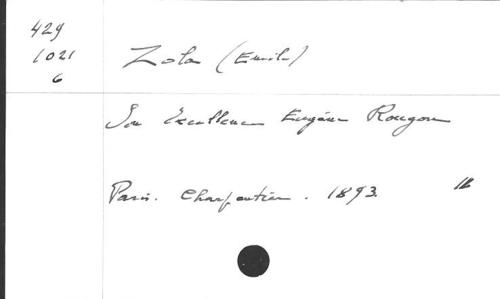 429
1021
6
Zola (Emile)
Son Excellence Eugène Rougon
Paris. Charpentier. 1893.